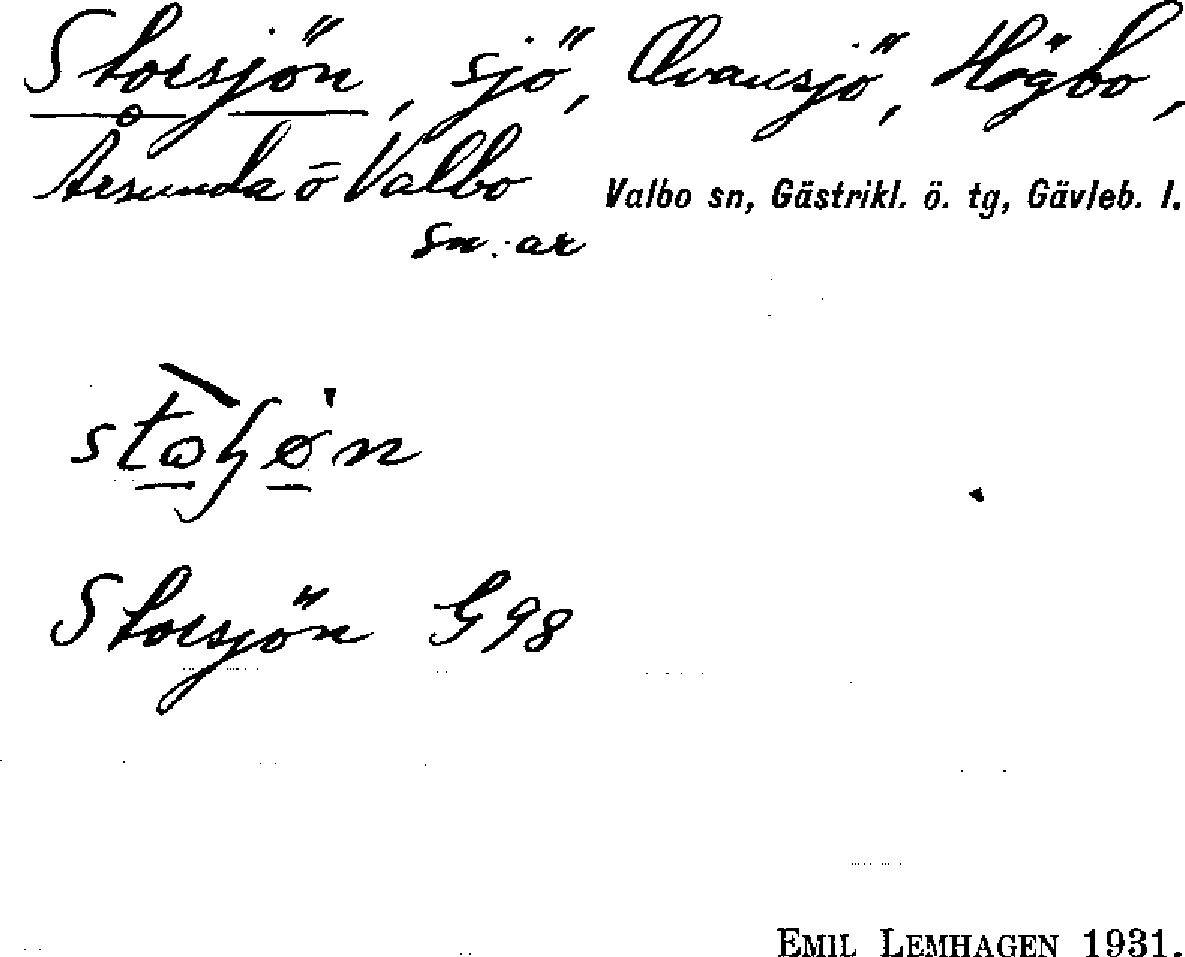 Storsjön, sjö, Ovansjö, Högbo,
Årsunda o Valbo
sn:ar
Valbo sn, Gästrikl. ö. tg, Gävleb. l.
Storsjön G98
EMIL LEMHAGEN 1931.